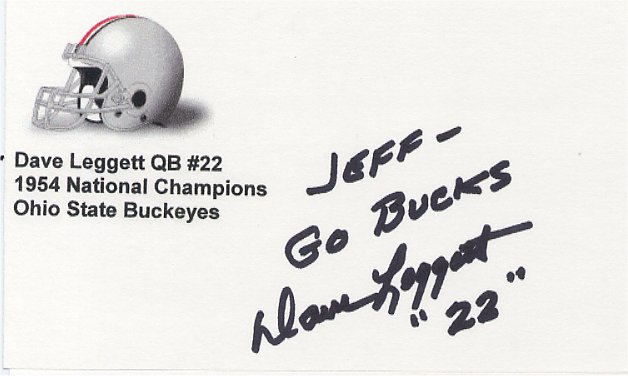 Dave Leggett QB #22
1954 National Champions
Ohio State Buckeyes
JEFF-
GO BUCKS
Dave Leggett
"22"